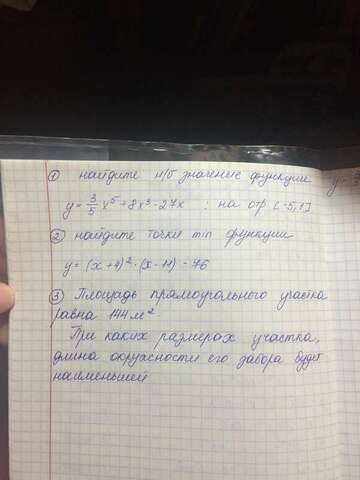 ① найдите н/б значение функции
y = 3/5 x⁵ + 8x³ - 27x ; на отр [-5, 1]
② найдите точки min функции
y = (x + 4)² · (x - 11) - 76
③ Площадь прямоугольного участка
равна 144 м²
При каких размерах участка,
длина окружности его забора будет
наименьшей